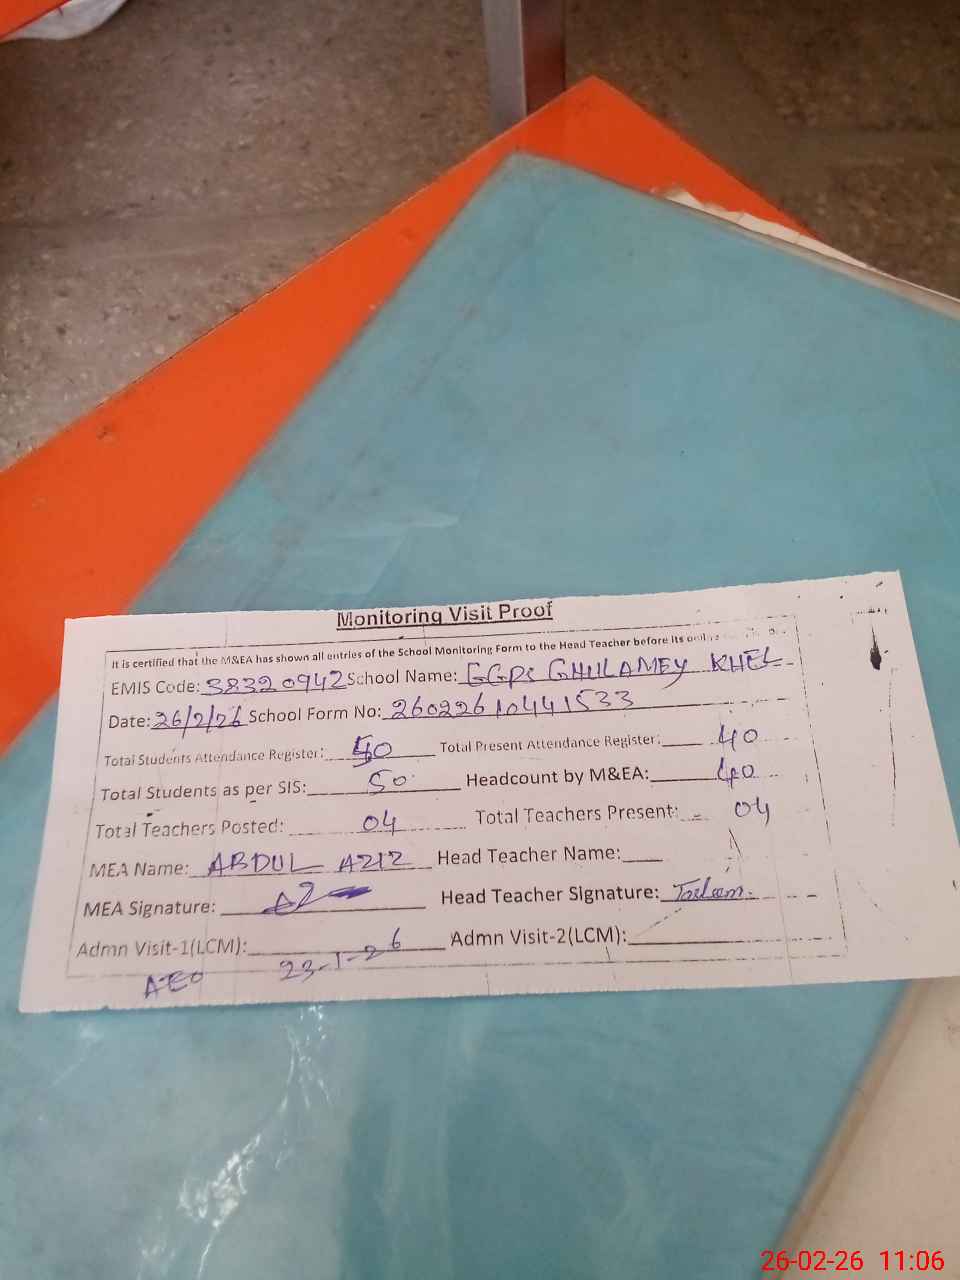 Monitoring Visit Proof
It is certified that the M&EA has shown all entries of the School Monitoring Form to the Head Teacher before its
EMIS Code: 38320942 School Name: GGPS GHULAMEY KHEL
Date: 26/2/26 School Form No: 26022610441533
Total Students Attendance Register: 50 Total Present Attendance Register: 40
Total Students as per SIS: 50 Headcount by M&EA: 40
Total Teachers Posted: 04 Total Teachers Present: 04
MEA Name: ABDUL AZIZ Head Teacher Name:
MEA Signature: Head Teacher Signature:
Admn Visit-1(LCM): 23-1-26 Admn Visit-2(LCM):
AEO
26-02-26 11:06